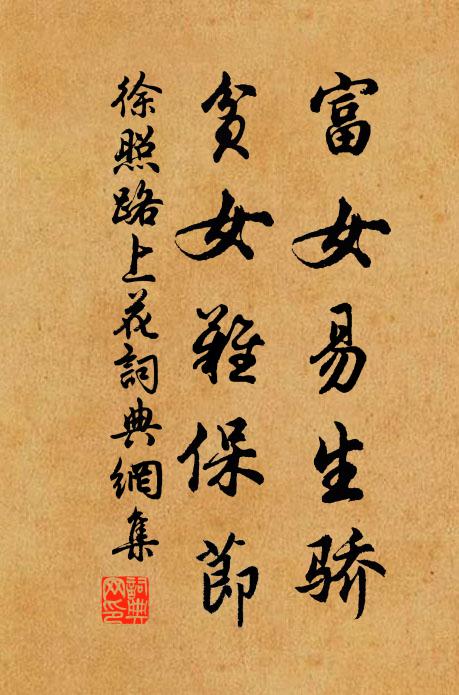 富女易生骄
贫女難保節
徐照路上花詞典網集
詞典
网印